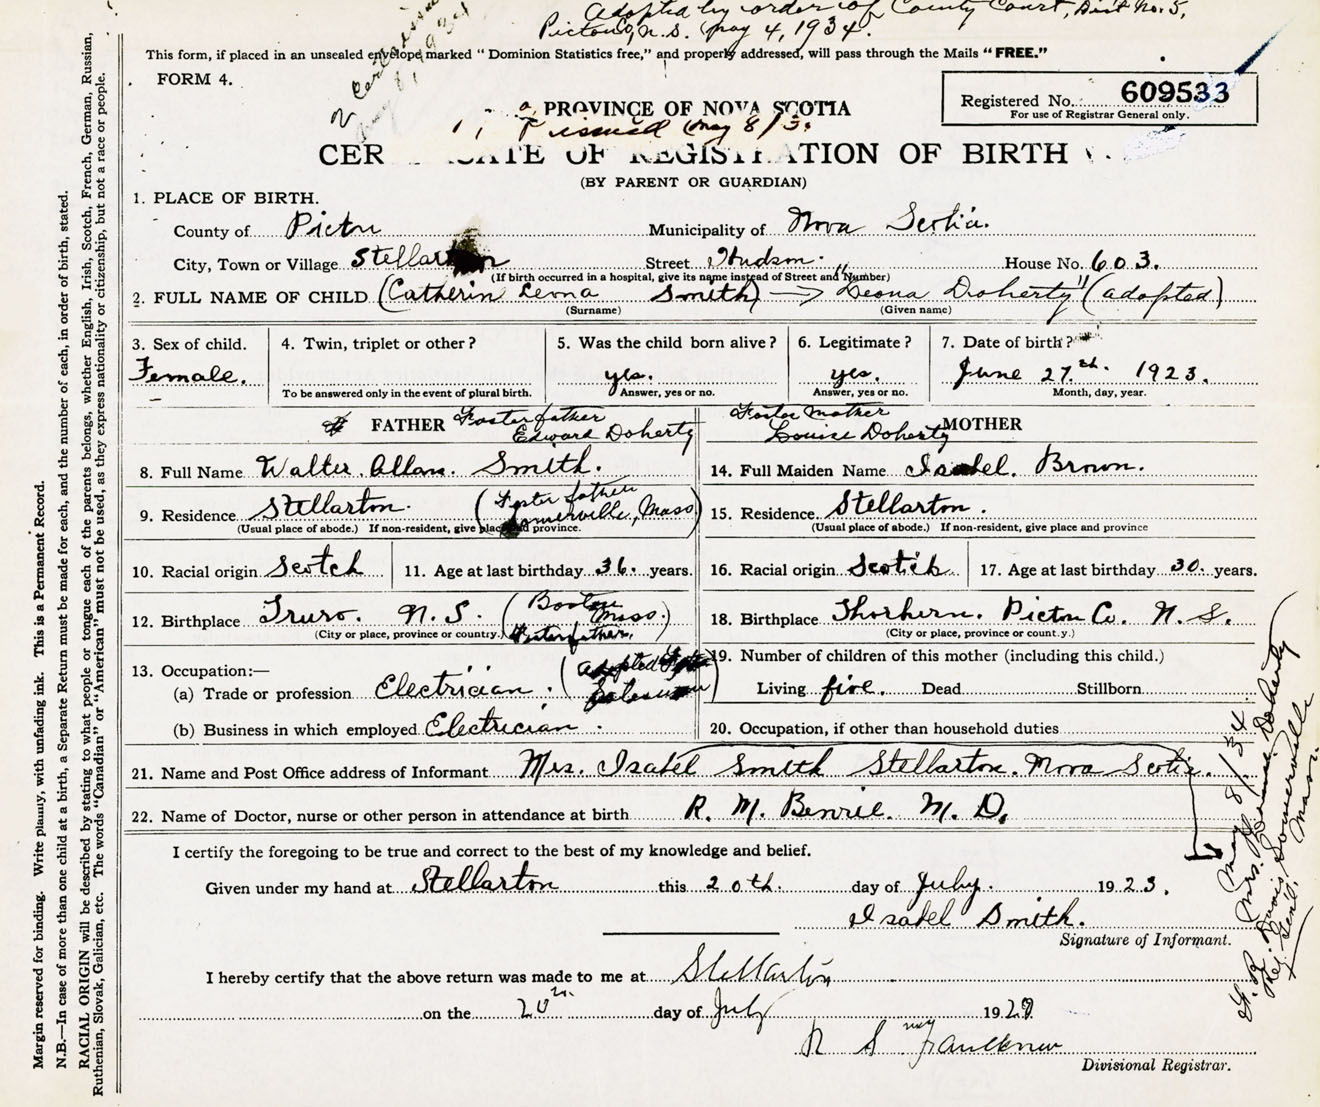 Adopted by order of County Court, Dist No. 5,
Pictou, N.S. May 4, 1934.
This form, if placed in an unsealed envelope marked "Dominion Statistics free," and properly addressed, will pass through the Mails "FREE."
FORM 4.
Registered No. 609533
For use of Registrar General only.
PROVINCE OF NOVA SCOTIA
issued May 8/3
CER CATE OF REGISTRATION OF BIRTH
(BY PARENT OR GUARDIAN)
1. PLACE OF BIRTH.
County of Pictou Municipality of Nova Scotia.
City, Town or Village Stellarton Street Hudson. House No. 603.
(If birth occurred in a hospital, give its name instead of Street and Number)
2. FULL NAME OF CHILD (Catherin Leona Smith) → "Leona Doherty" (adopted)
(Surname) (Given name)
3. Sex of child. 4. Twin, triplet or other? 5. Was the child born alive? 6. Legitimate? 7. Date of birth?
Female. yes. yes. June 27th. 1923.
To be answered only in the event of plural birth. Answer, yes or no. Answer, yes or no. Month, day, year.
FATHER Foster father Edward Doherty
Foster Mother Louise Doherty MOTHER
8. Full Name Walter. Allan. Smith. 14. Full Maiden Name Isabel. Brown.
9. Residence Stellarton. (Foster father Somerville, Mass) 15. Residence Stellarton.
(Usual place of abode.) If non-resident, give place and province. (Usual place of abode.) If non-resident, give place and province
10. Racial origin Scotch 11. Age at last birthday 36. years. 16. Racial origin Scotch 17. Age at last birthday 30. years.
12. Birthplace Truro. N.S. (Boston Mass. Foster father.) 18. Birthplace Thorburn. Pictou Co. N.S.
(City or place, province or country.) (City or place, province or count.y.)
13. Occupation:— (adopted 19. Number of children of this mother (including this child.)
(a) Trade or profession Electrician. Salesman) Living five. Dead Stillborn
(b) Business in which employed Electrician. 20. Occupation, if other than household duties
21. Name and Post Office address of Informant Mrs. Isabel Smith Stellarton. Nova Scotia.
22. Name of Doctor, nurse or other person in attendance at birth R. M. Benvie. M. D.
I certify the foregoing to be true and correct to the best of my knowledge and belief.
Given under my hand at Stellarton this 20th. day of July. 1923.
Isabel Smith.
Signature of Informant.
I hereby certify that the above return was made to me at Stellarton
on the 20th day of July 192
R S Faulkner
Divisional Registrar.
Margin reserved for binding. Write plainly, with unfading ink. This is a Permanent Record.
N.B.—In case of more than one child at a birth, a Separate Return must be made for each, and the number of each, in order of birth, stated.
RACIAL ORIGIN will be described by stating to what people or tongue each of the parents belongs, whether English, Irish, Scotch, French, German, Russian,
Ruthenian, Slovak, Galician, etc. The words "Canadian" or "American" must not be used, as they express nationality or citizenship, but not a race or people.
May 8/34
Mrs. Doherty
Somerville
Mass.